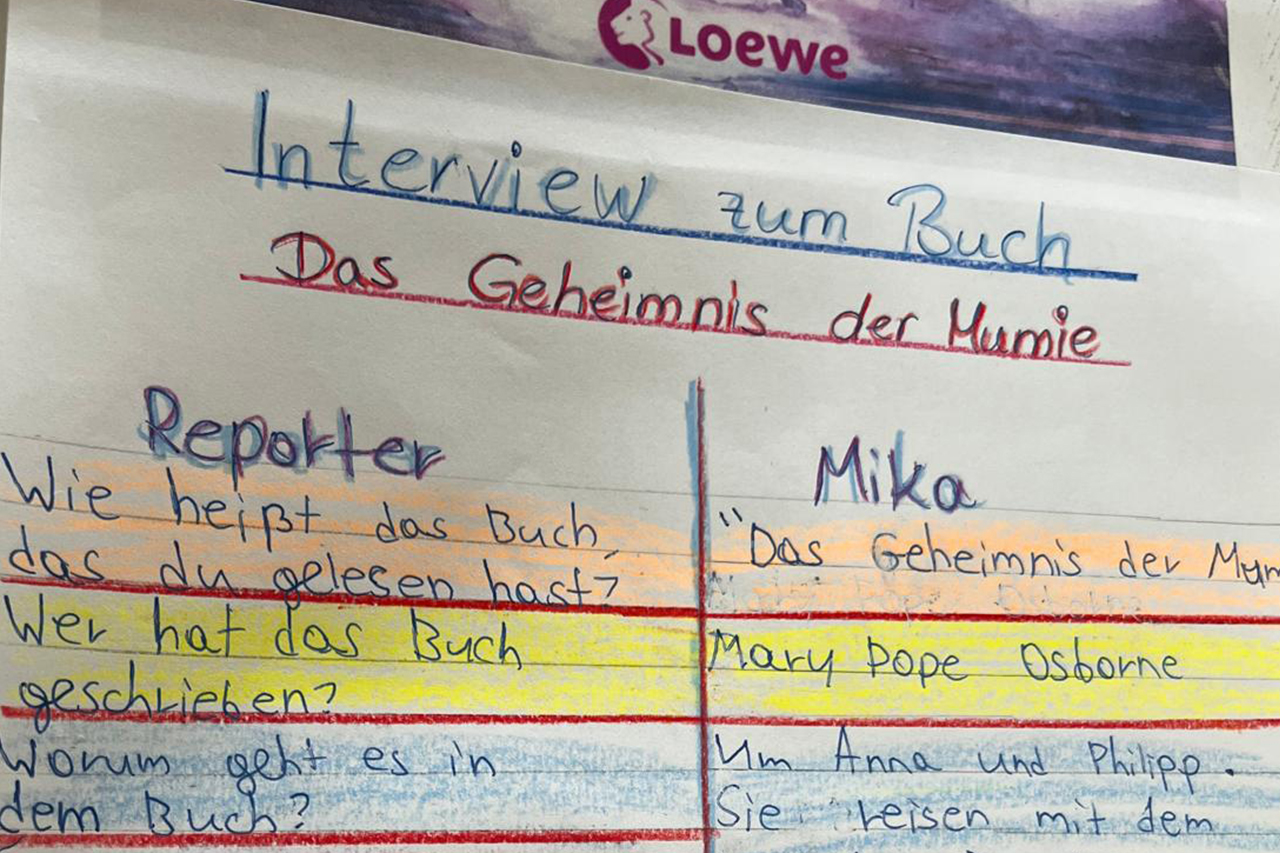 Loewe
Interview zum Buch
Das Geheimnis der Mumie
Reporter
Wie heißt das Buch,
das du gelesen hast?
Wer hat das Buch
geschrieben?
Worum geht es in
dem Buch?
Mika
"Das Geheimnis der Mum
Mary Pope Osborne
Um Anna und Philipp.
Sie reisen mit dem